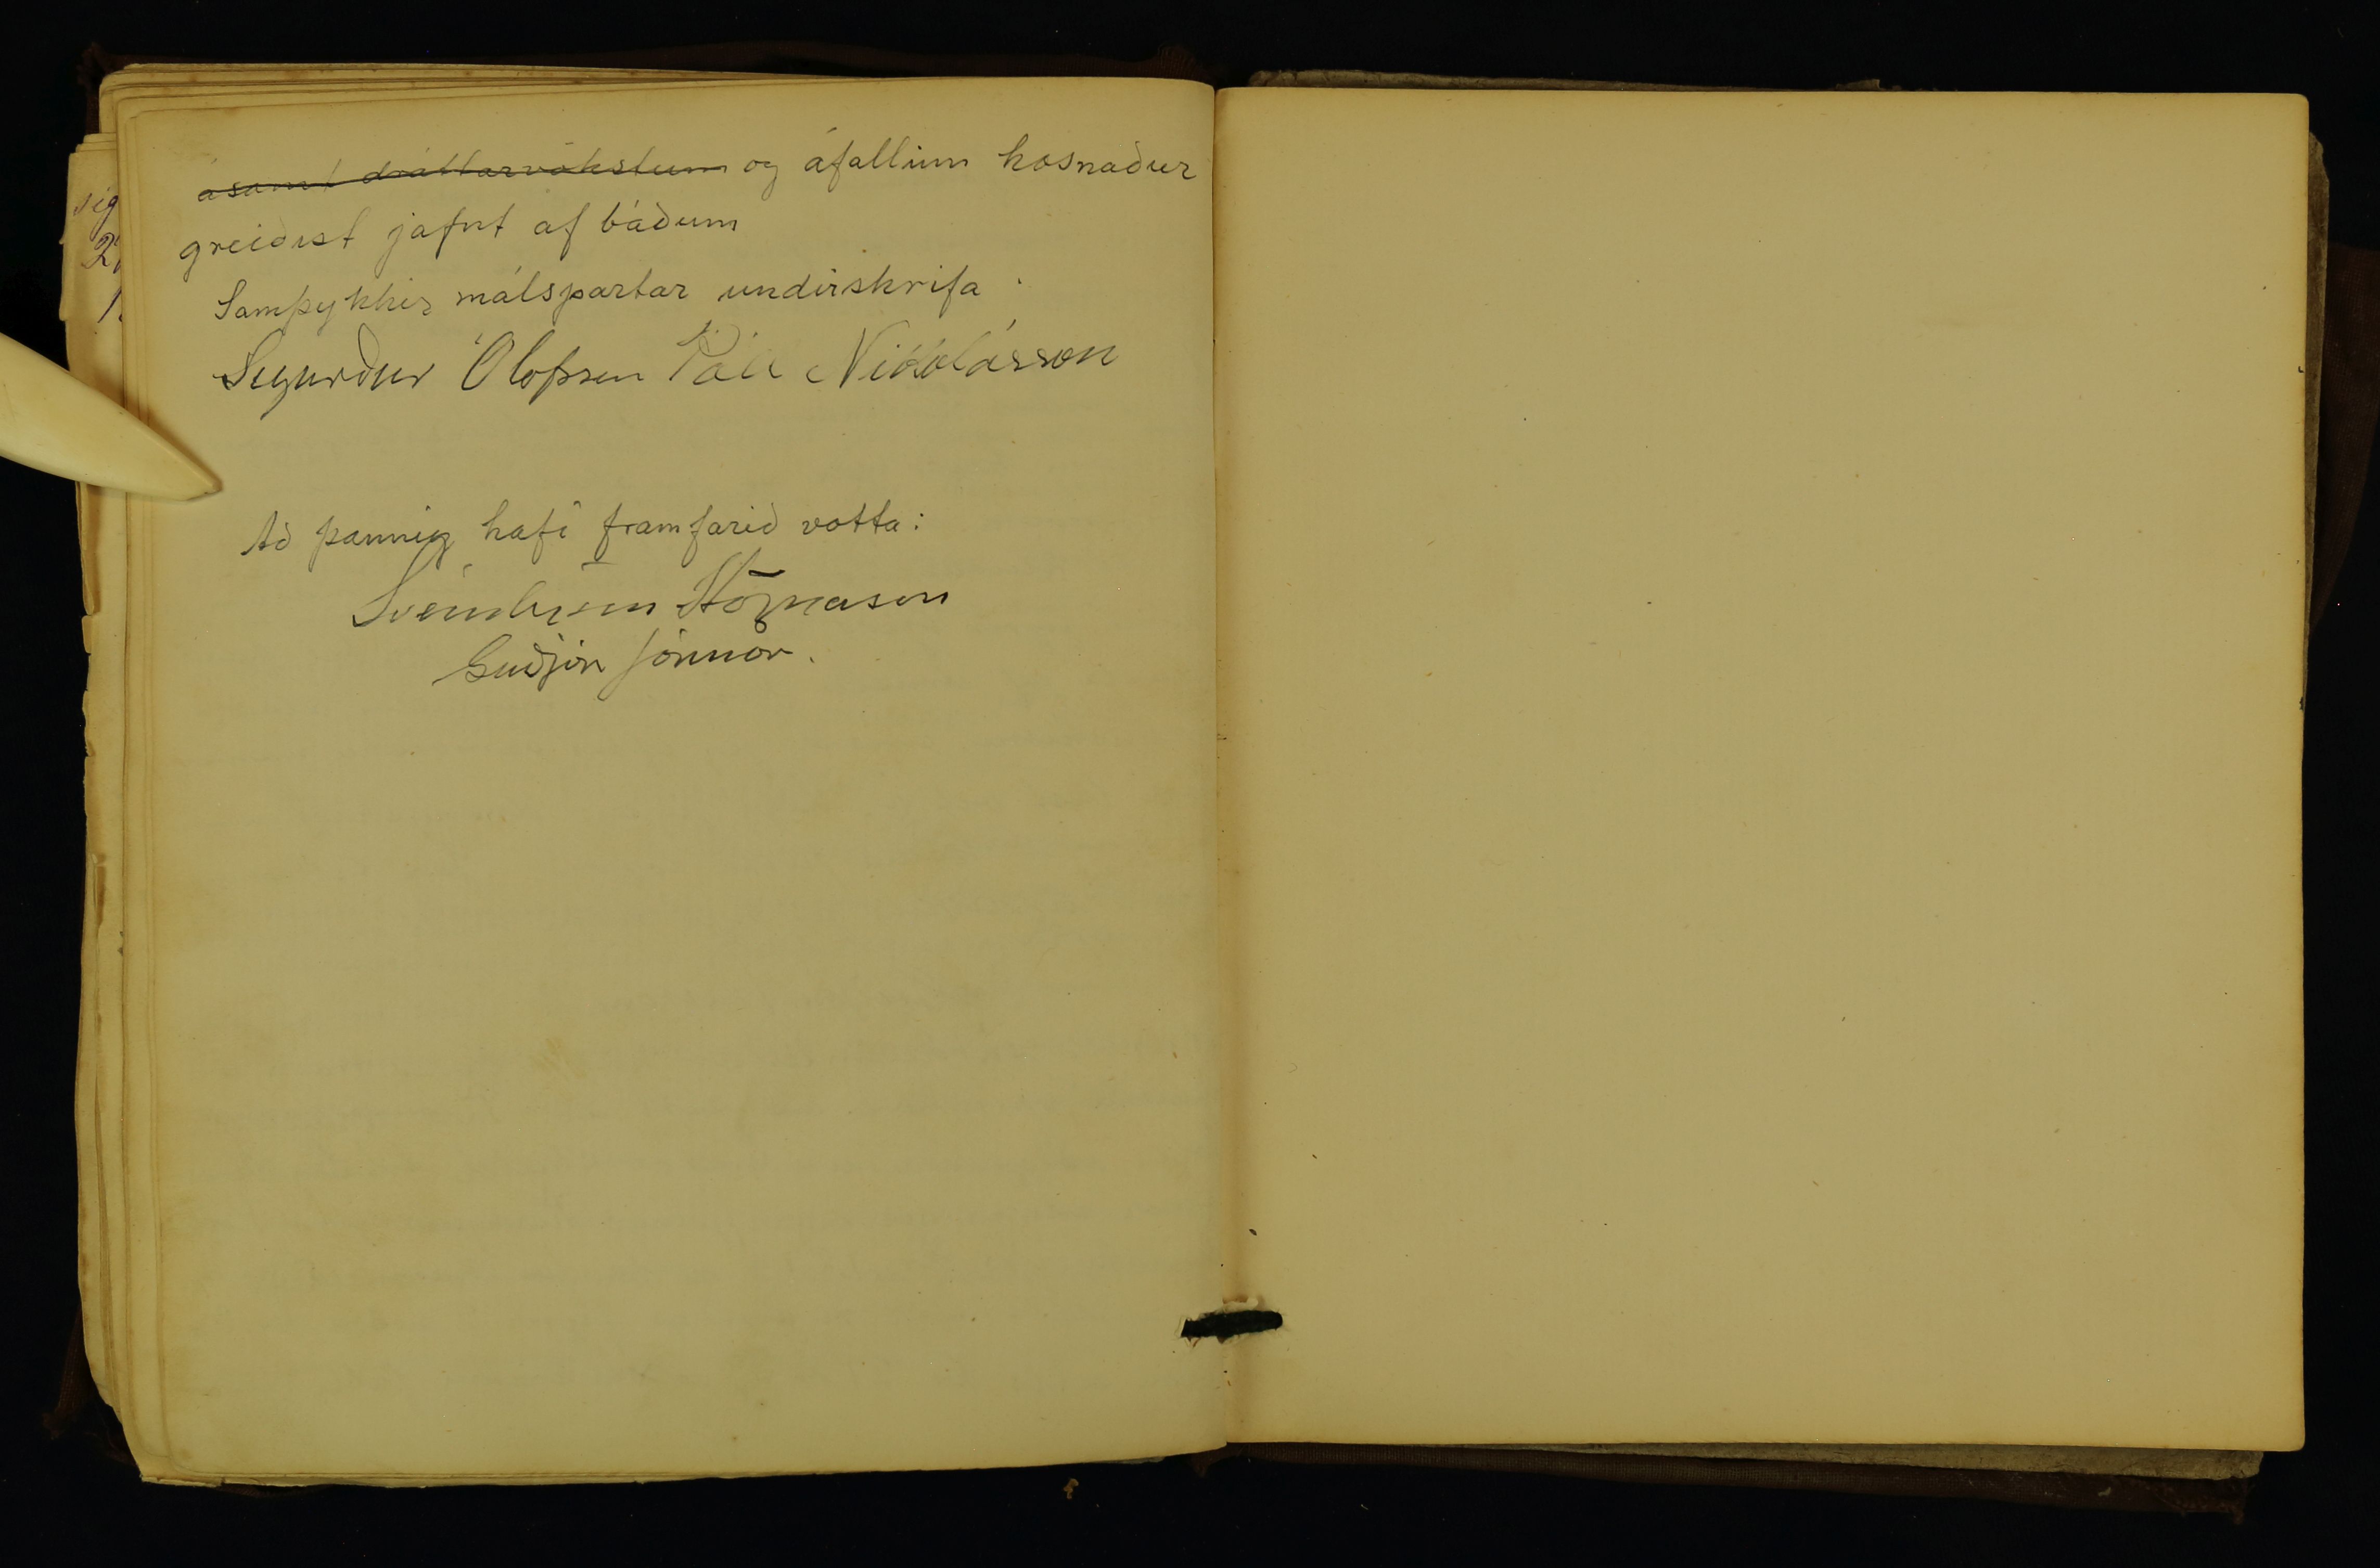 ásamt dráttarvökstum og áfallinn kosnaður
greiðist jafnt af báðum
Samþykkir málspartar undirskrifa
Sigurður Ólafsson Páll Nikólásson
Að þannig hafi framfarið votta:
Sveinbjörn Högnason
Guðjón Jónsson.